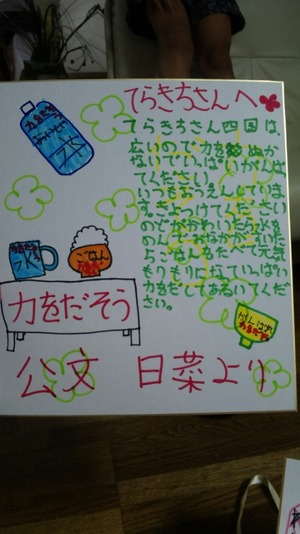 てらきちさんへ
てらきちさん四国は、
広いので力をぬか
ないでいっぱいがんば
てください。
いつもおうえんしていま
す。きょつけてください
のどがかわいたら水を
のんでおなかがすいた
らごはんもたべて元気
もりもりになっていっぱい
力をだしてあるいてくだ
さい。
水
水
ごはん
力をだそう
がんばれ
公文 日菜より